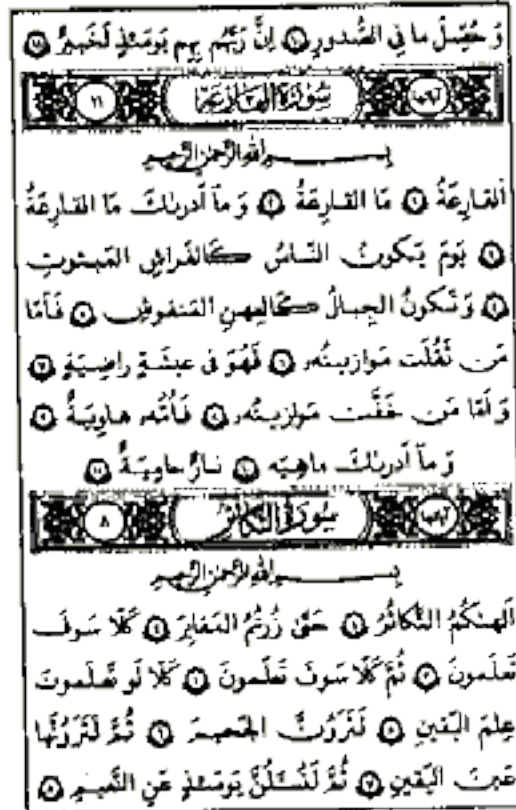 وَ حُصِّلَ ما فِی الصُّدورِ ۱۰ اِنَّ رَبَّهُم بِهِم یَومَئِذٍ لَخَبیرٌ ۱۱
آیاتها سورَةُ القارِعَة ۱۱
بِسمِ اللهِ الرَّحمٰنِ الرَّحیمِ
اَلقارِعَةُ ۱ مَا القارِعَةُ ۲ وَ ماۤ اَدرىٰكَ مَا القارِعَةُ
۳ یَومَ یَكونُ النّاسُ كَالفَراشِ المَبثوثِ
۴ وَ تَكونُ الجِبالُ كَالعِهنِ المَنفوشِ ۵ فَاَمّا
مَن ثَقُلَت مَوازینُه، ۶ فَهُوَ فی عیشَةٍ راضِیَةٍ ۷
وَ اَمّا مَن خَفَّت مَوازینُه، ۸ فَاُمُّه، هاوِیَةٌ ۹
وَ ماۤ اَدرىٰكَ ماهِیَه ۱۰ نارٌ حامِیَةٌ ۱۱
آیاتها سورَةُ التَّكاثُر ۸
بِسمِ اللهِ الرَّحمٰنِ الرَّحیمِ
اَلهىٰكُمُ التَّكاثُرُ ۱ حَتّىٰ زُرتُمُ المَقابِرَ ۲ كَلّا سَوفَ
تَعلَمونَ ۳ ثُمَّ كَلّا سَوفَ تَعلَمونَ ۴ كَلّا لَو تَعلَمونَ
عِلمَ الیَقینِ ۵ لَتَرَوُنَّ الجَحیمَ ۶ ثُمَّ لَتَرَوُنَّها
عَینَ الیَقینِ ۷ ثُمَّ لَتُسئَلُنَّ یَومَئِذٍ عَنِ النَّعیمِ ۸